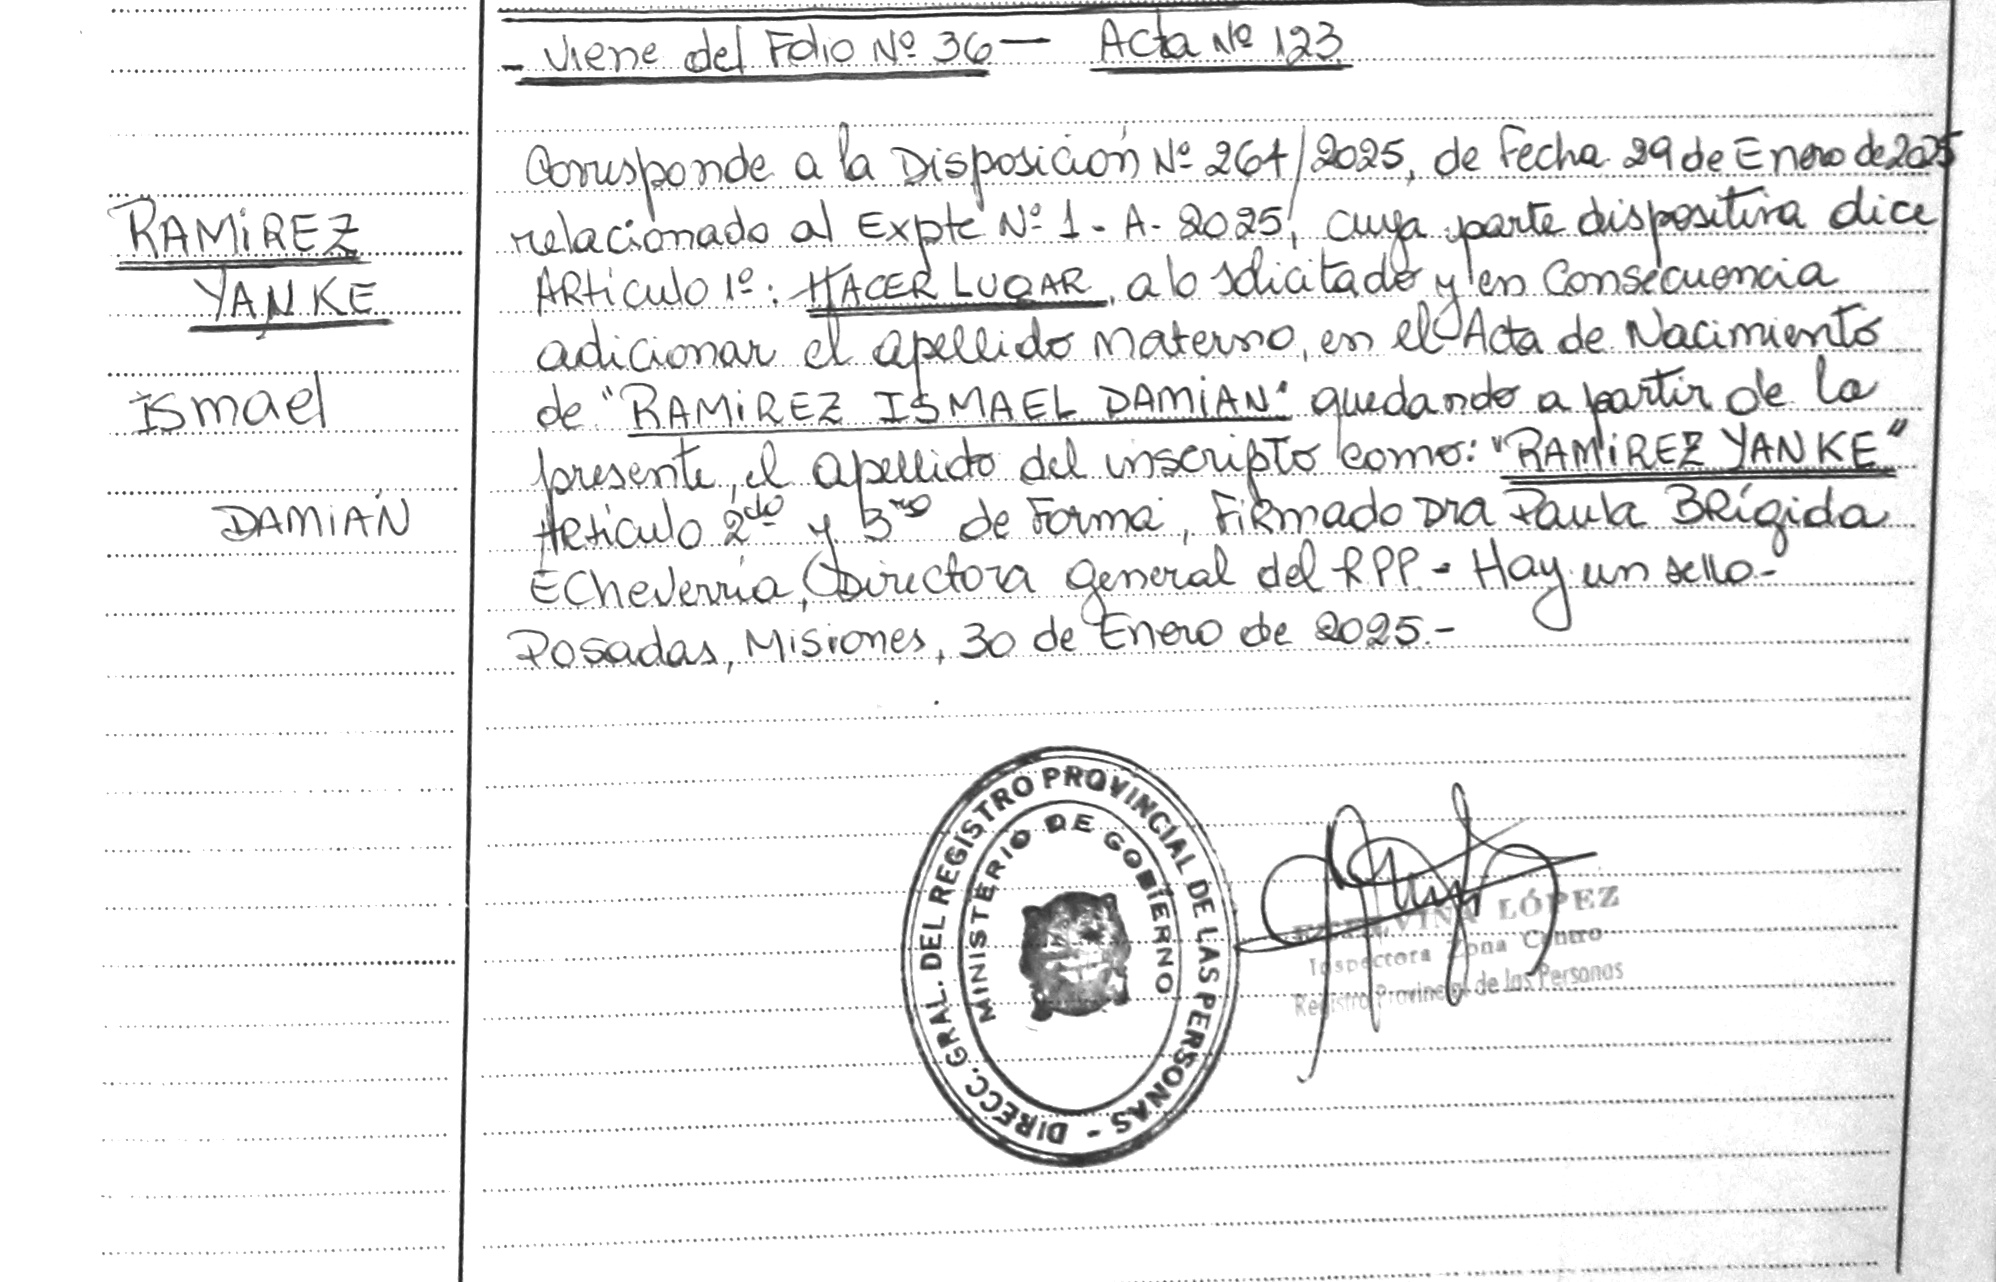 - Viene del Folio Nº 36 — Acta Nº 123
Corresponde a la Disposición Nº 264/2025, de Fecha 29 de Enero de 2025
relacionado al Expte Nº 1 - A - 2025, cuya parte dispositiva dice
RAMIREZ
YANKE
ismael
DAMIÁN
Artículo 1º: HACER LUGAR, a lo solicitado y en Consecuencia
adicionar el apellido Materno, en el Acta de Nacimiento
de "RAMIREZ ISMAEL DAMIAN" quedando a partir de la
presente, el apellido del inscripto como: "RAMIREZ YANKE"
Artículo 2do y 3ro de Forma, Firmado Dra Paula Brígida
Echeverría, Directora General del RPP - Hay un sello -
Posadas, Misiones, 30 de Enero de 2025.-
DIRECC. GRAL. DEL REGISTRO PROVINCIAL DE LAS PERSONAS -
MINISTERIO DE GOBIERNO
LÓPEZ
Inspectora Zona Centro
Registro Provincial de las Personas